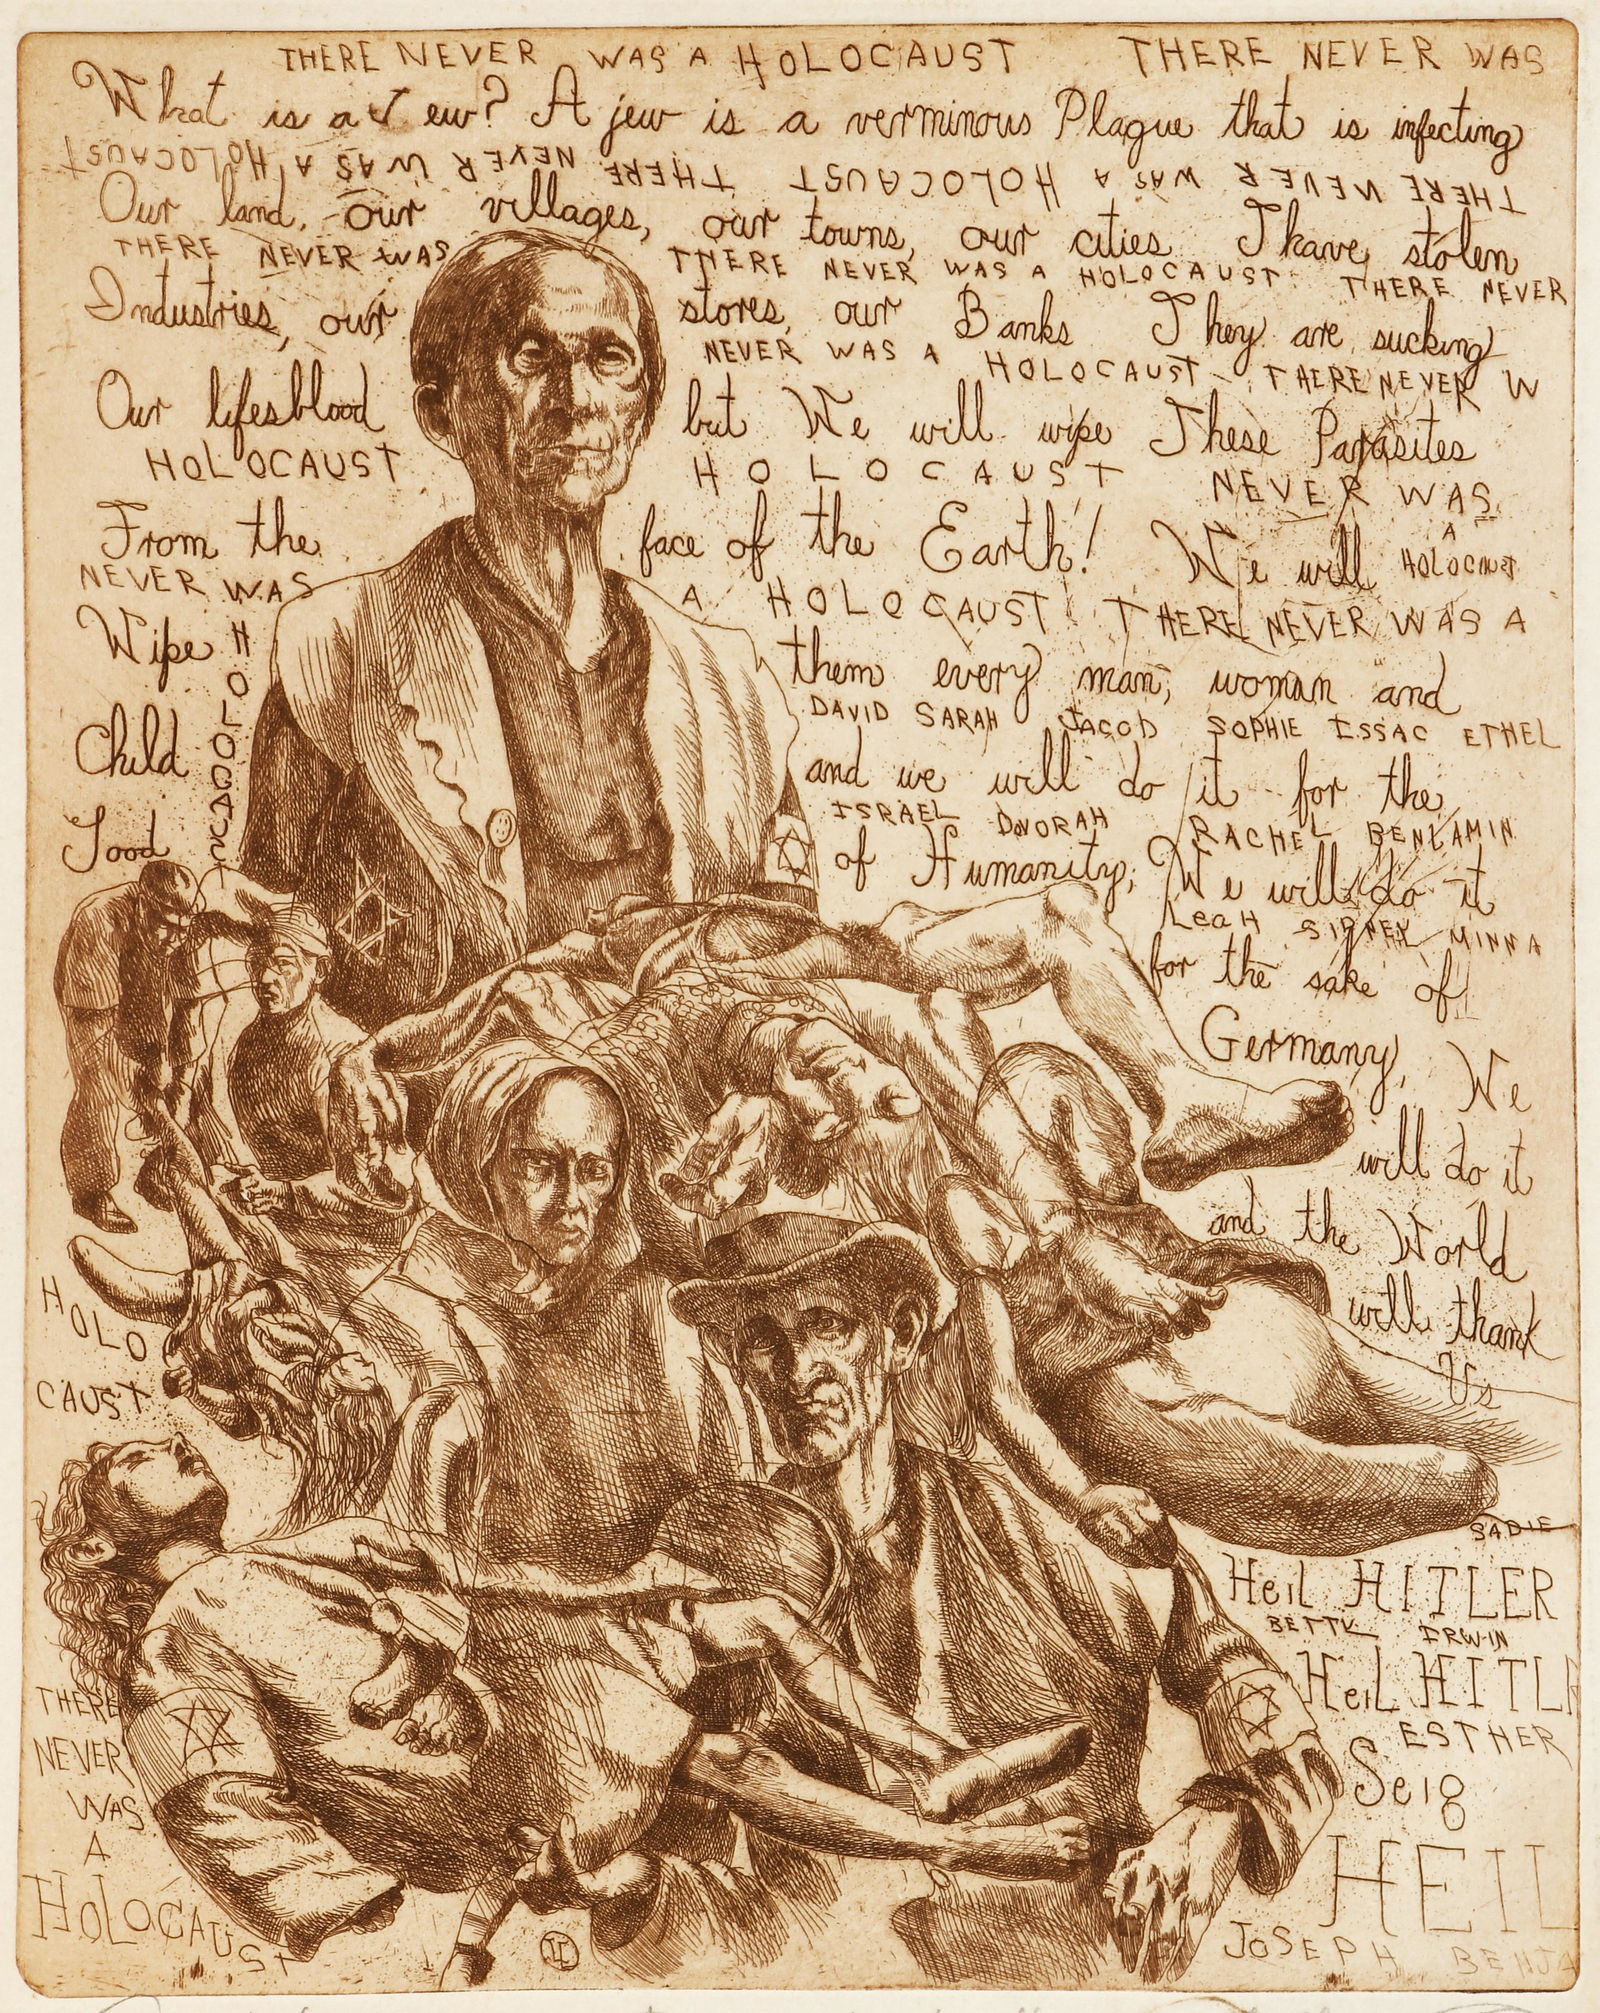 THERE NEVER WAS A HOLOCAUST THERE NEVER WAS
What is a Jew? A jew is a verminous Plague that is infecting
THERE NEVER WAS A HOLOCAUST THERE NEVER WAS A HOLOCAUST
Our land, our villages, our towns, our cities Thave, stolen
THERE NEVER WAS THERE NEVER WAS A HOLOCAUST THERE NEVER
Industries, our stores, our Banks They are sucking
NEVER WAS A HOLOCAUST THERE NEVER W
Our lifesblood but We will wipe These Parasites
HOLOCAUST HOLOCAUST NEVER WAS
A
From the face of the Earth! We will HOLOCAUST
NEVER WAS A HOLOCAUST THERE NEVER WAS A
Wipe them every man, woman and
HOLOCAUST
DAVID SARAH JACOB SOPHIE ISSAC ETHEL
Child and we will do it for the
ISRAEL DVORAH RACHEL BENJAMIN
Good of Humanity; We will do it
LeaH SIDNEY MINNA
for the sake of
Germany, We
will do it
and the World
will thank
Us
HOLO
CAUST
SADIE
Heil HITLER
BETTY IRWIN
HeiL HITLE
ESTHER
Seig
HEIL
JOSEPH BENJA
THERE
NEVER
WAS
A
HOLOCAUST